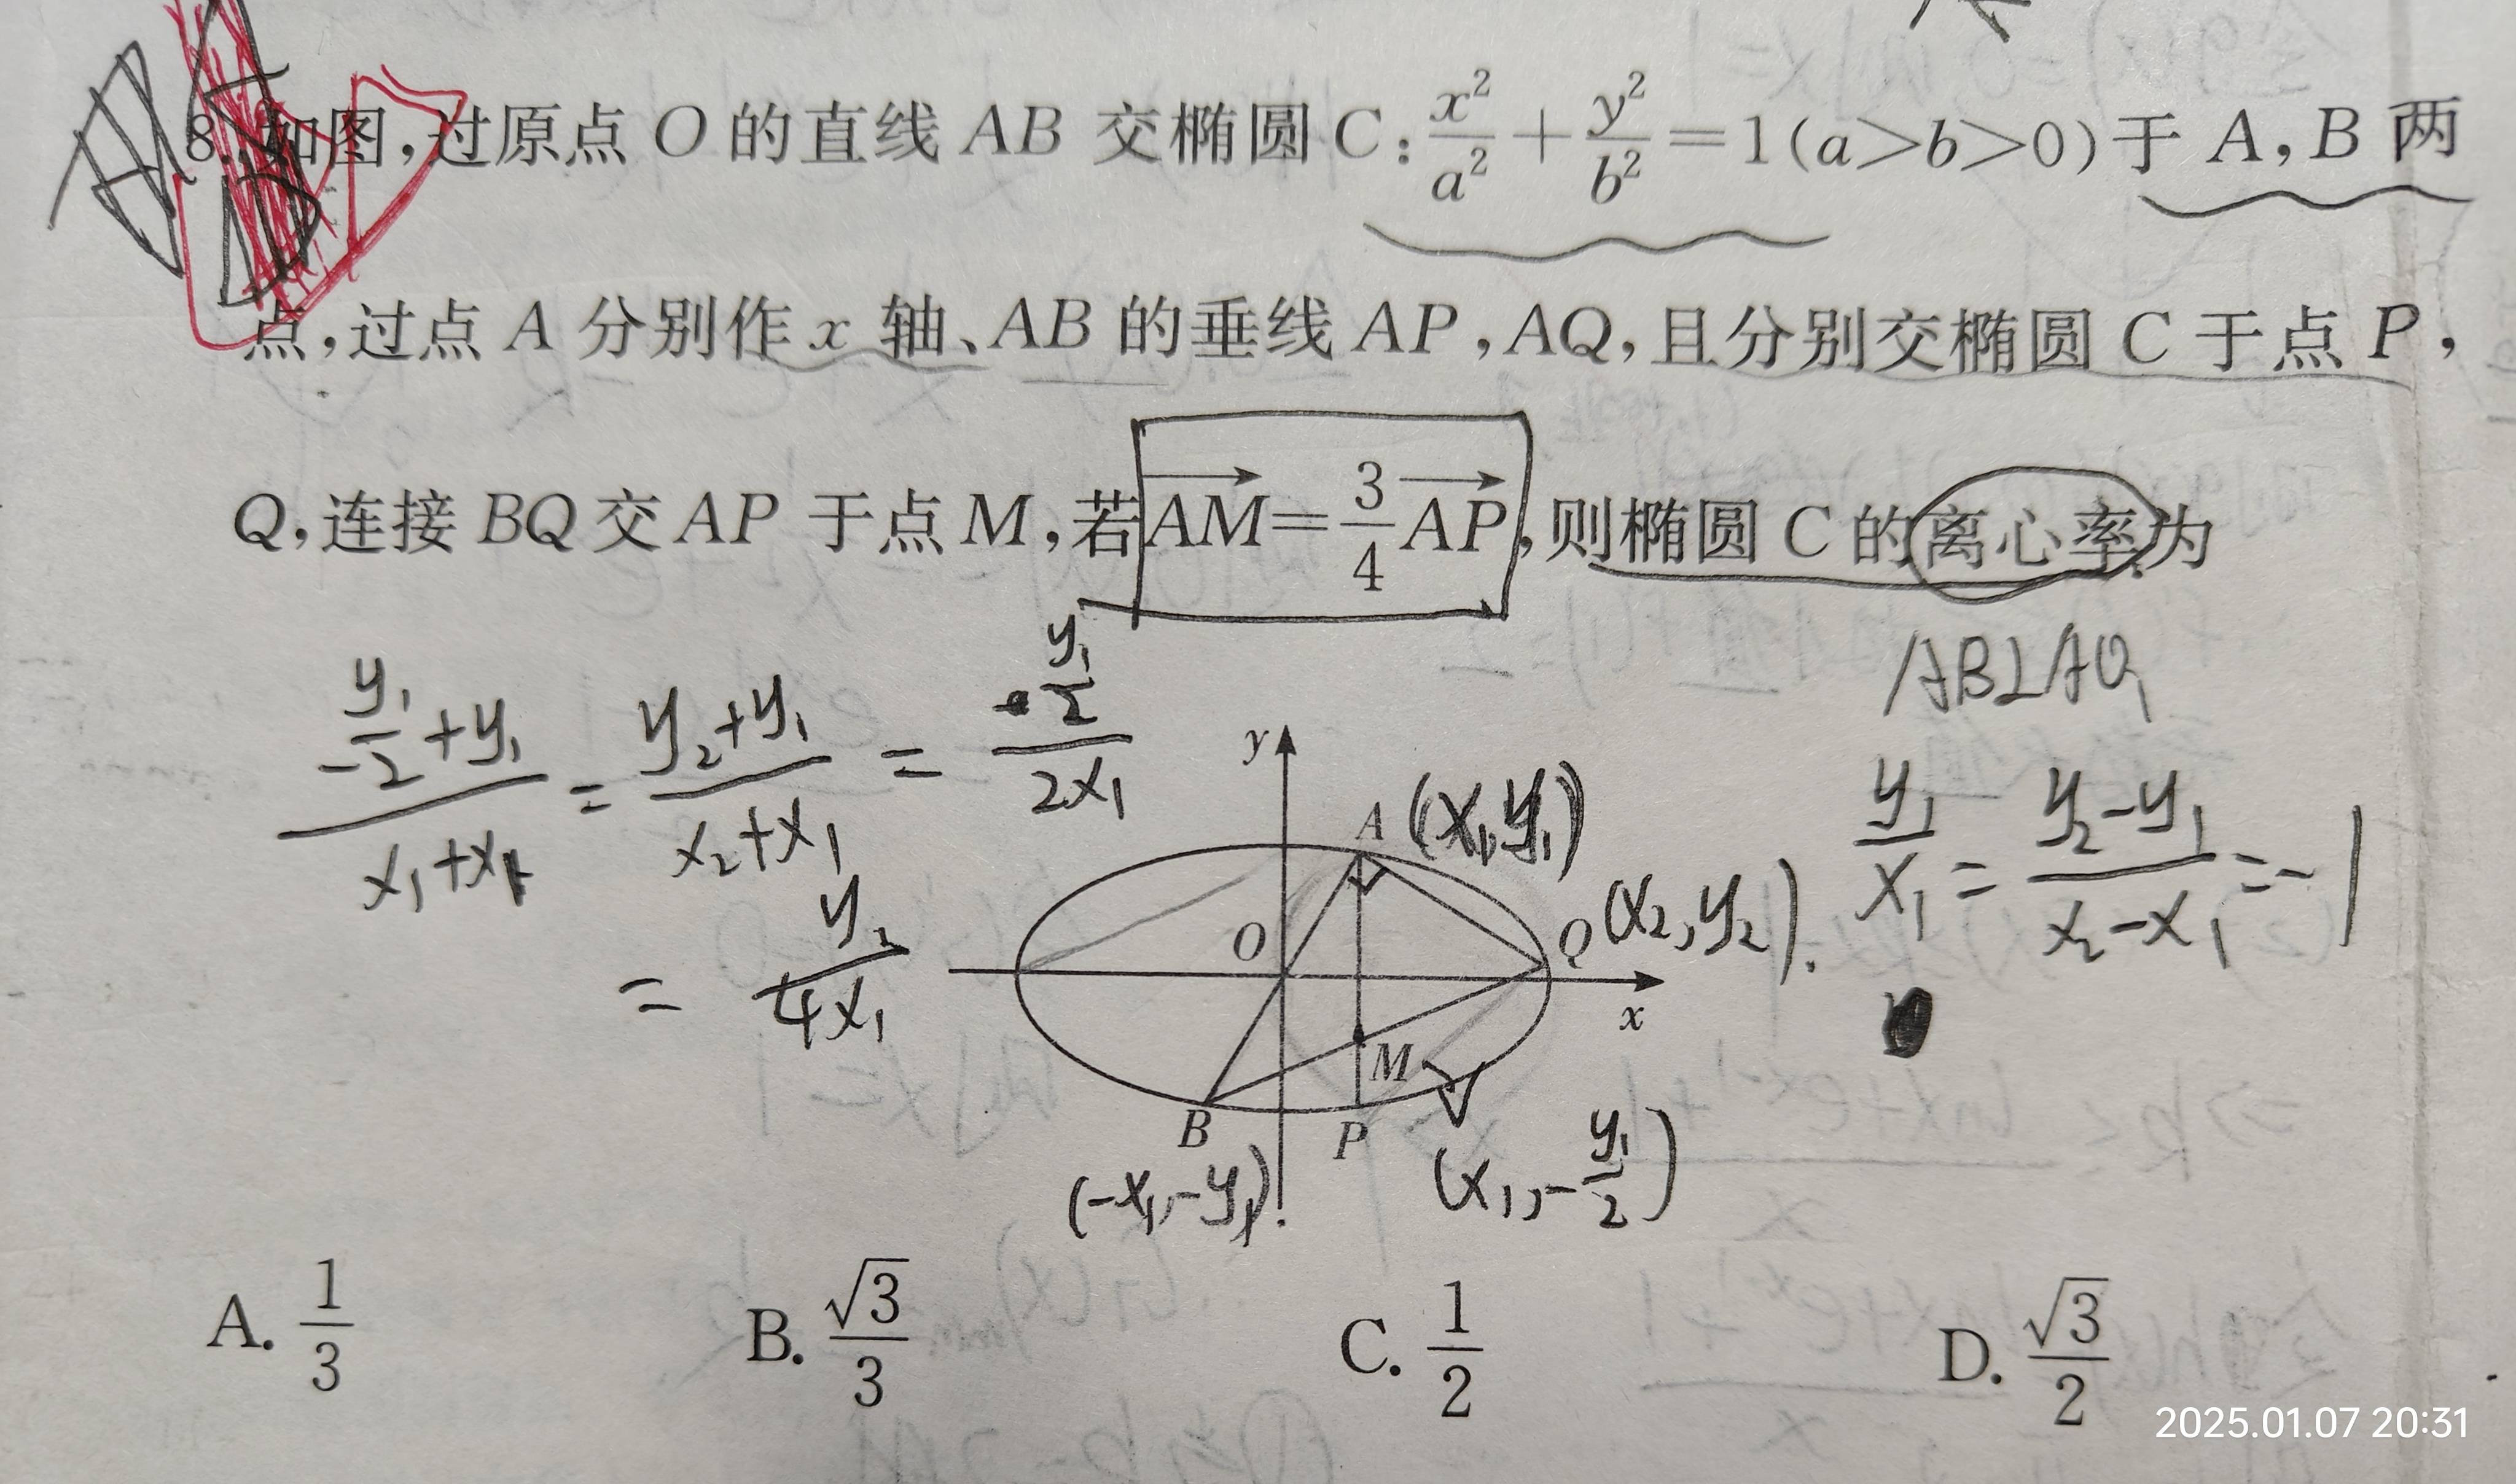 8. 如图,过原点 O 的直线 AB 交椭圆 C:x²/a²+y²/b²=1(a>b>0)于 A,B 两
点,过点 A 分别作 x 轴、AB 的垂线 AP,AQ,且分别交椭圆 C 于点 P,
Q,连接 BQ 交 AP 于点 M,若 AM=3/4 AP,则椭圆 C 的离心率为
AB⊥AQ
(-y₁/2+y₁)/(x₁+x₁) = (y₂+y₁)/(x₂+x₁) = (y₁/2)/(2x₁)
= y₁/(4x₁)
y₁/x₁ = (y₂-y₁)/(x₂-x₁) = -1
y
A (x₁,y₁)
O
Q (x₂,y₂).
x
M
B
P
(-x₁,-y₁).
(x₁,-y₁/2)
A. 1/3 B. √3/3 C. 1/2 D. √3/2
2025.01.07 20:31